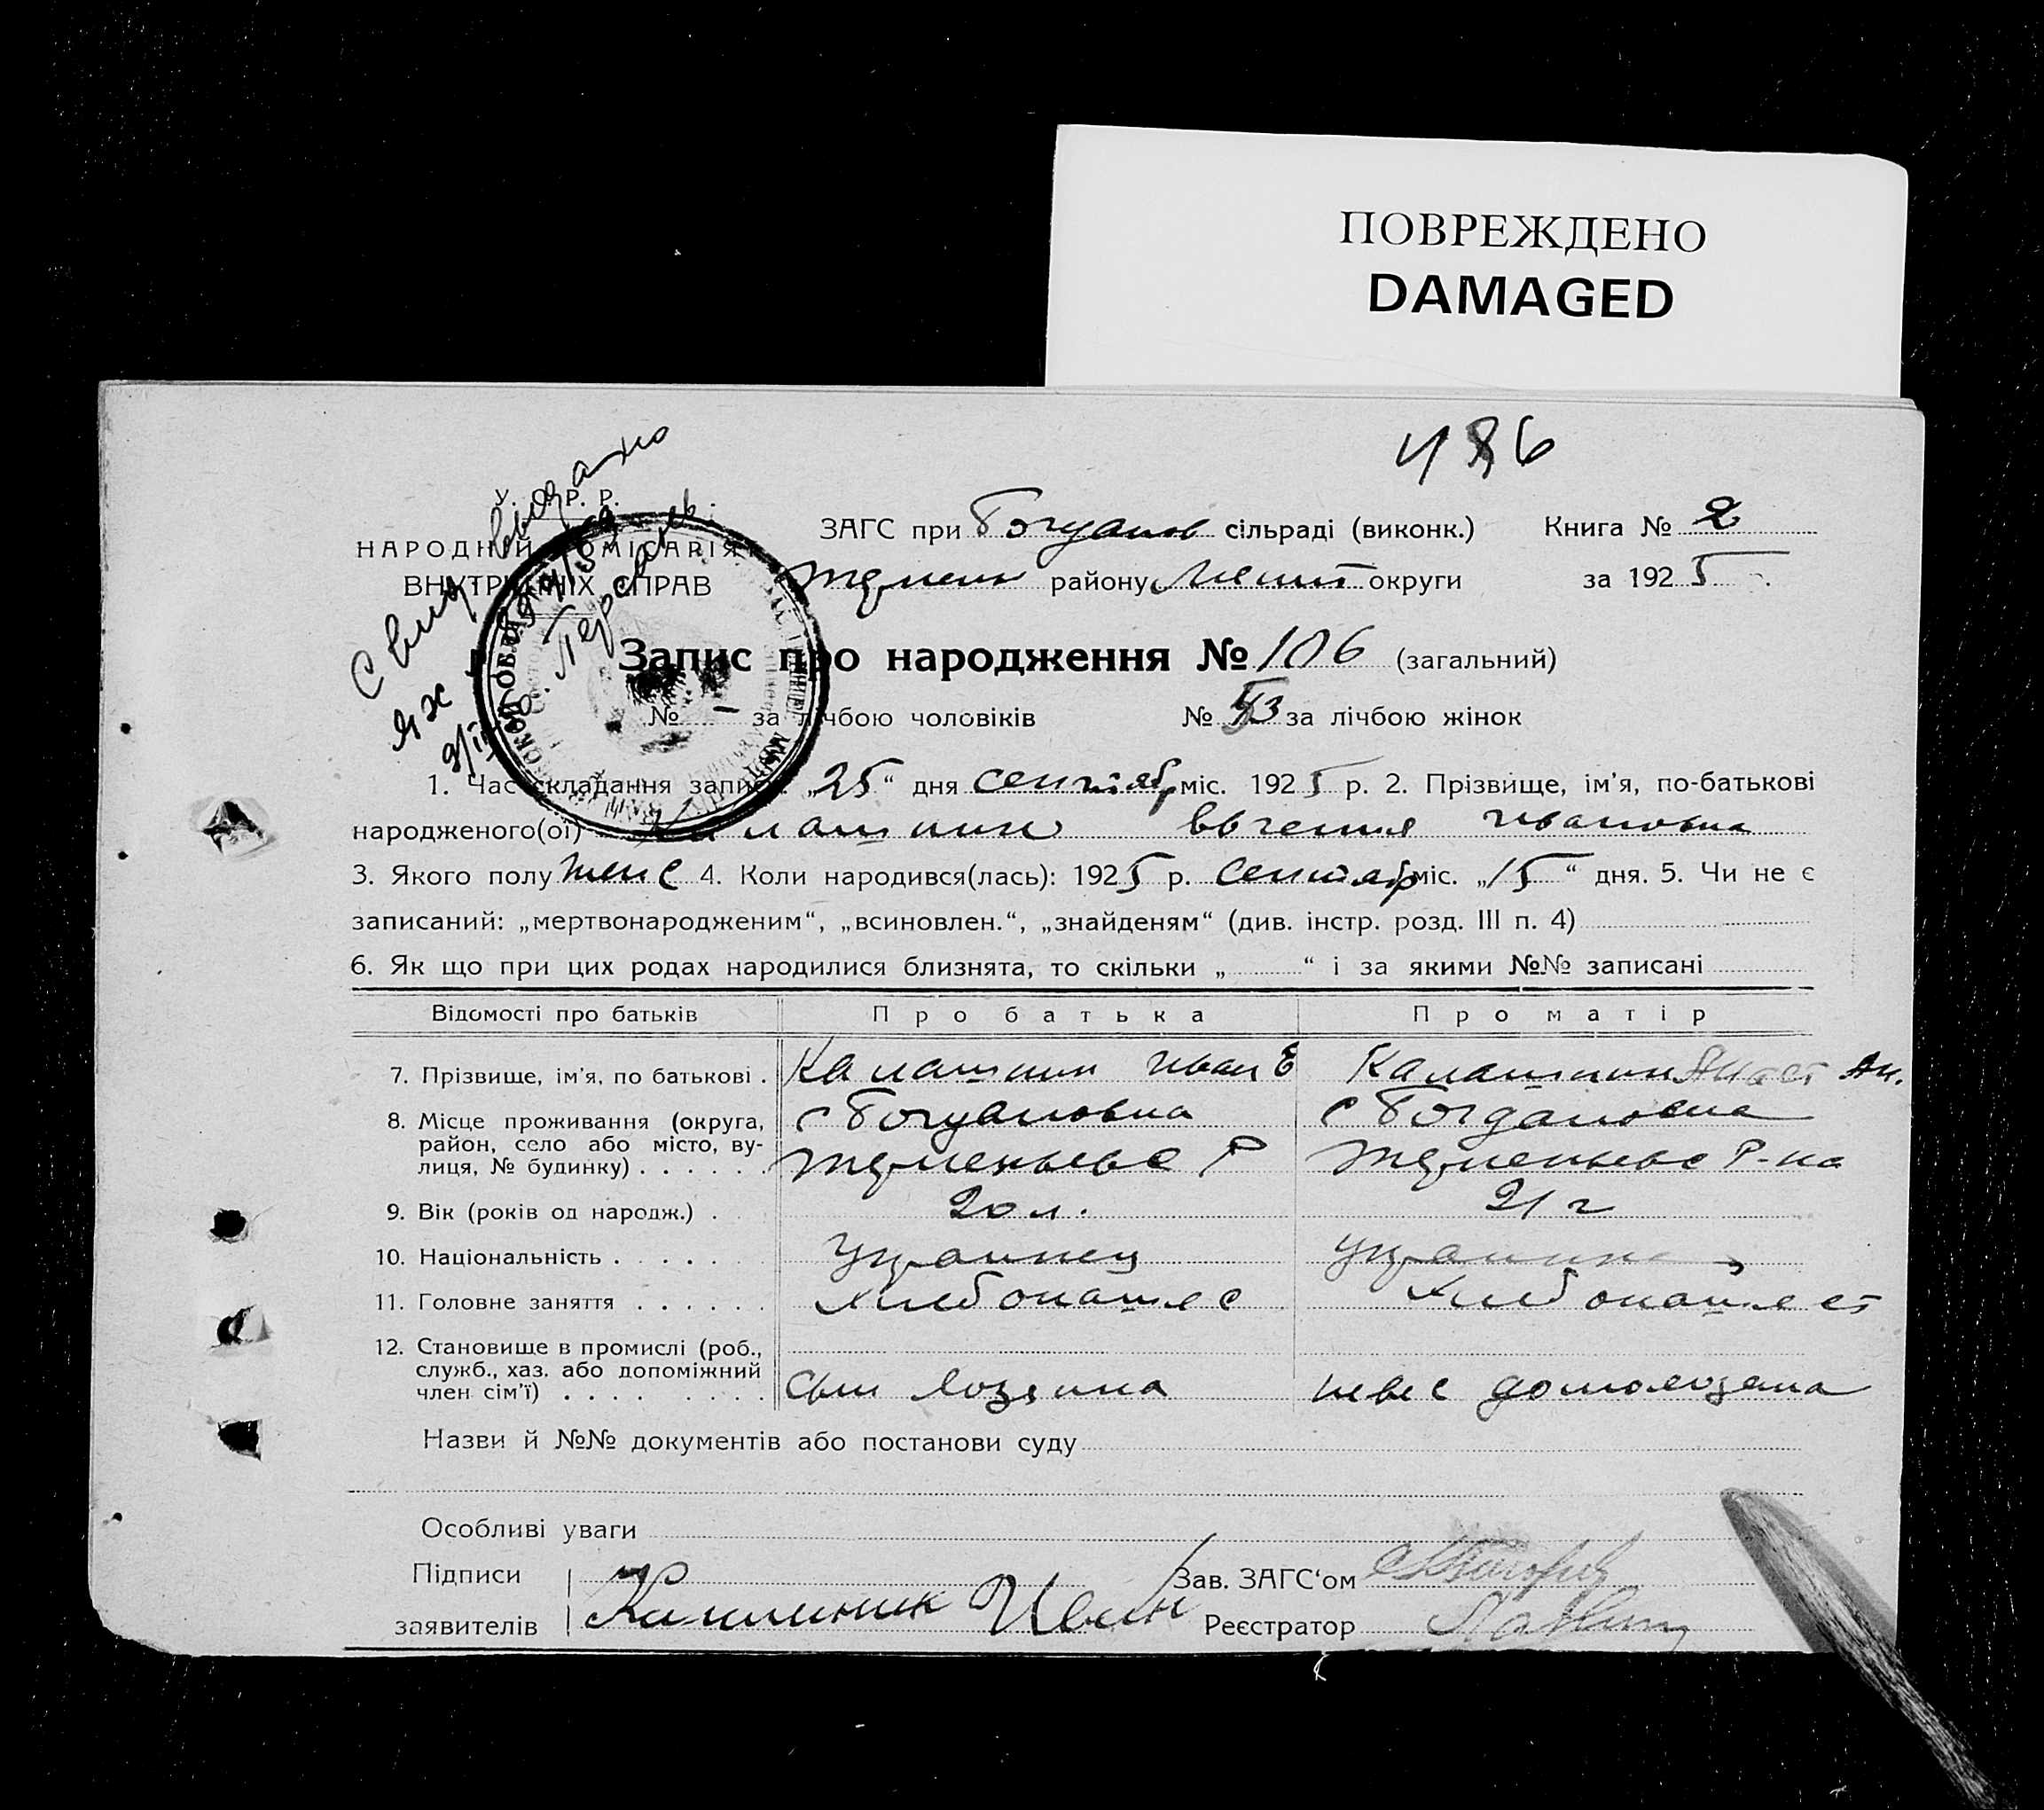 ПОВРЕЖДЕНО
DAMAGED
486
У. С. Р. Р.
НАРОДНИЙ КОМІСАРІЯТ
ВНУТРІШНІХ СПРАВ
ЗАГС при Богданов сільраді (виконк.) Книга № 2
району округи за 1925
Запис про народження № 106 (загальний)
№ – за лічбою чоловіків № 53 за лічбою жінок
1. Час складання запису: „25“ дня сентябр міс. 1925 р. 2. Прізвище, ім’я, по-батькові
народженого(ої) Калашник Ивановна
3. Якого полу женс 4. Коли народився(лась): 1925 р. сентябр міс. „15“ дня. 5. Чи не є
записаний: „мертвонародженим“, „всиновлен.“, „знайденям“ (див. інстр. розд. III п. 4)
6. Як що при цих родах народилися близнята, то скільки „ “ і за якими №№ записані
Відомості про батьків Про батька Про матір
7. Прізвище, ім’я, по батькові . Калашник Иван Е Калашник Анаст Ан.
8. Місце проживання (округа, с Богдановка с Богдановка
район, село або місто, ву-
лиця, № будинку) . . . . . Р Р-на
9. Вік (років од народж.) . 20 л. 21 г
10. Національність . . . . . украинец украинка
11. Головне заняття . . . . . . хлебопашес хлебопашест
12. Становище в промислі (роб.,
служб., хаз. або допоміжний
член сім’ї) . . . . . . . . . сын хозяина невес домохозяина
Назви й №№ документів або постанови суду
Особливі уваги
Підписи Зав. ЗАГС‘ом
заявителів Калашник Иван Реєстратор